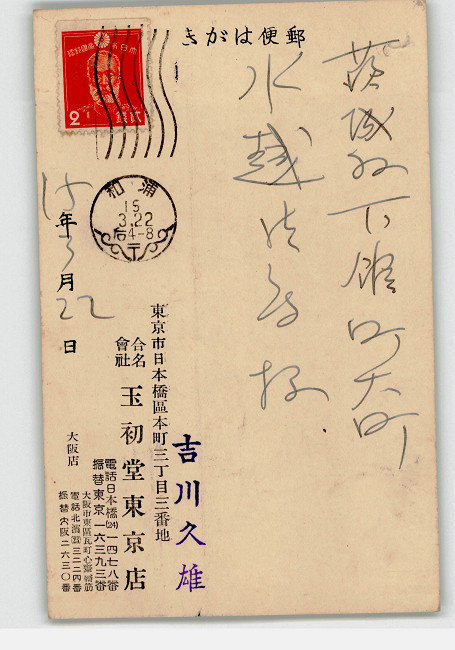 郵便はがき
茨城縣下館町大町
水越 様
大日本帝國郵便
2 貳錢
浦和
15
3.22
后4-8
15年3月22日
東京市日本橋區本町三丁目三番地
合名會社 玉初堂東京店
吉川久雄
電話日本橋(24)一四七八番
振替東京一六三九三番
大阪店
大阪市東區瓦町心齋橋筋
電話北濱(23)三二二四番
振替大阪二六三〇番